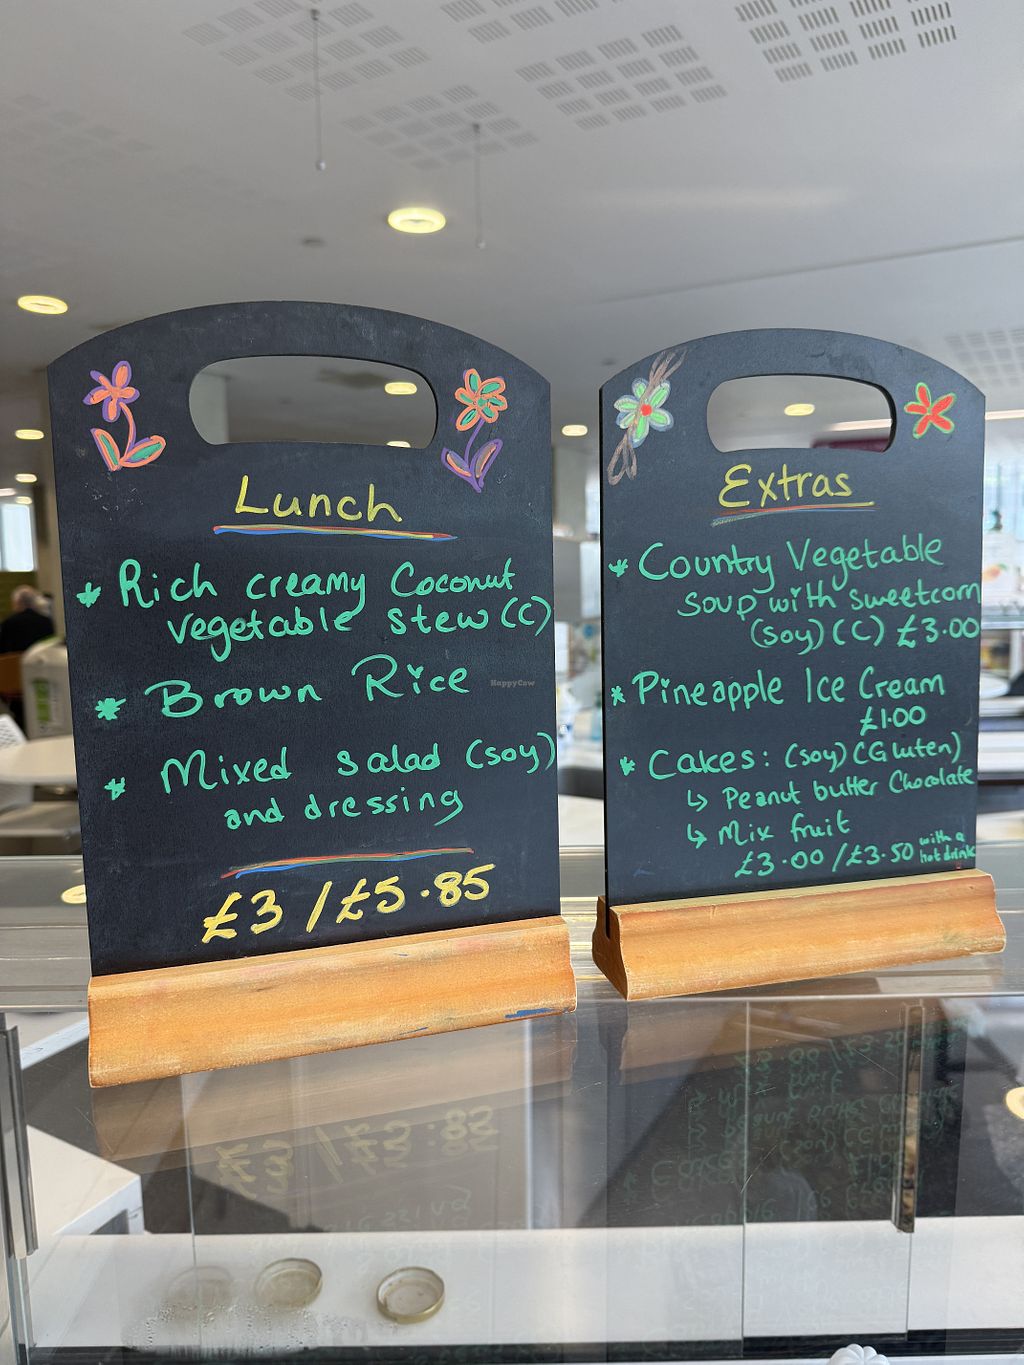 Lunch
* Rich creamy Coconut
vegetable stew (C)
* Brown Rice
* Mixed salad (soy)
and dressing
£3 / £5.85
HappyCow
Extras
* Country Vegetable
soup with sweetcorn
(soy) (C) £3.00
* Pineapple Ice Cream
£1.00
* Cakes: (soy) (Gluten)
↳ Peanut butter Chocolate
↳ Mix fruit
£3.00 / £3.50 with a
hot drink